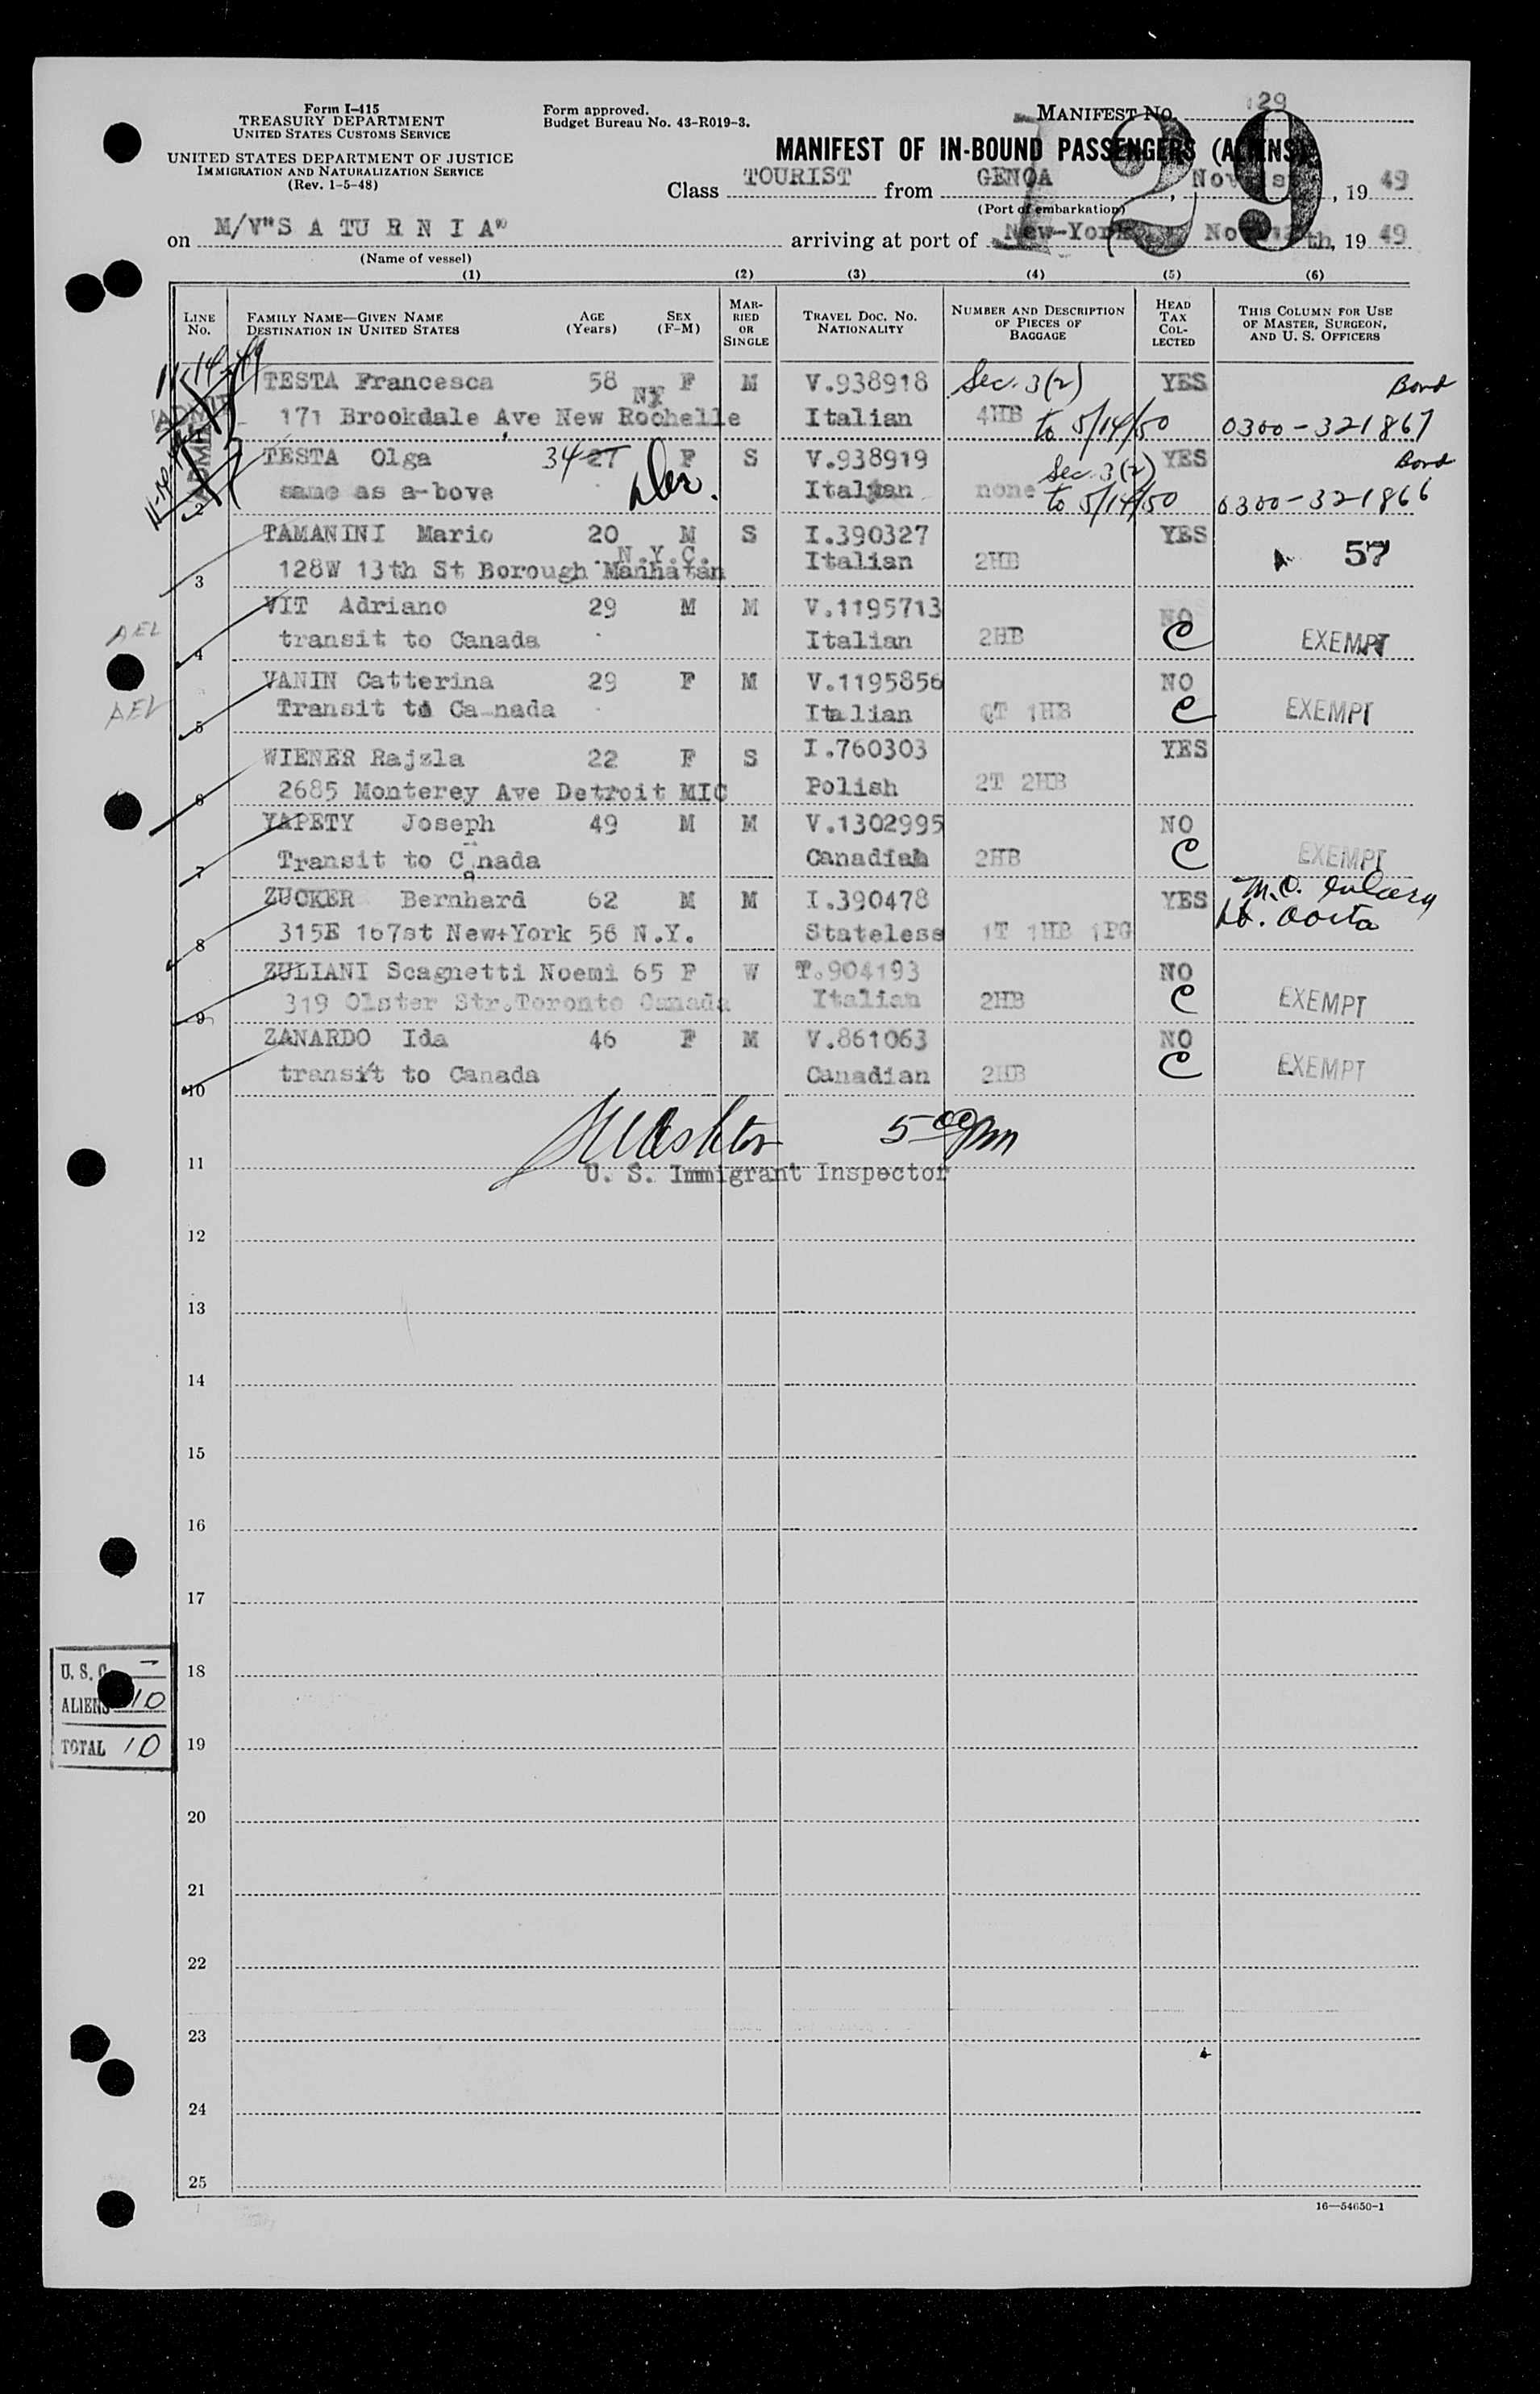 Form I-415
TREASURY DEPARTMENT
UNITED STATES CUSTOMS SERVICE
UNITED STATES DEPARTMENT OF JUSTICE
IMMIGRATION AND NATURALIZATION SERVICE
(Rev. 1-5-48)
Form approved.
Budget Bureau No. 43-R019-3.
MANIFEST NO. 29
129
MANIFEST OF IN-BOUND PASSENGERS (ALIENS)
Class TOURIST from GENOA, Nov 1st, 19 49
(Port of embarkation)
on M/V"S A TU R N I A" arriving at port of New-York Nov 12th, 19 49
(Name of vessel)
(1) (2) (3) (4) (5) (6)
LINE No. FAMILY NAME—GIVEN NAME DESTINATION IN UNITED STATES AGE (Years) SEX (F-M) MARRIED OR SINGLE TRAVEL DOC. NO. NATIONALITY NUMBER AND DESCRIPTION OF PIECES OF BAGGAGE HEAD TAX COLLECTED THIS COLUMN FOR USE OF MASTER, SURGEON, AND U. S. OFFICERS
11-14-49
TESTA Francesca 58 F M V.938918 Sec. 3(2) YES Bond
171 Brookdale Ave New Rochelle NY Italian 4HB to 5/14/50 0300-321867
TESTA Olga 34 27 F S V.938919 Sec. 3(2) YES Bond
2 same as a-bove Italian none to 5/14/50 0300-321866
TAMANINI Mario 20 M S I.390327 YES
3 128W 13th St Borough Manhatan N.Y.C. Italian 2HB 57
VIT Adriano 29 M M V.1195713 NO
AEL
4 transit to Canada Italian 2HB C EXEMPT
VANIN Catterina 29 F M V.1195856 NO
AEL
5 Transit to Ca-nada Italian QT 1HB C EXEMPT
WIENER Rajzla 22 F S I.760303 YES
6 2685 Monterey Ave Detroit MIC Polish 2T 2HB
YAPETY Joseph 49 M M V.1302995 NO
7 Transit to Canada Canadian 2HB C EXEMPT
ZUCKER Bernhard 62 M M I.390478 YES
8 315E 167st New+York 56 N.Y. Stateless 1T 1HB 1PG
ZULIANI Scagnetti Noemi 65 F W T.904193 NO
9 319 Olster Str.Toronto Canada Italian 2HB C EXEMPT
ZANARDO Ida 46 F M V.861063 NO
10 transit to Canada Canadian 2HB C EXEMPT
5 00 pm
11 U. S. Immigrant Inspector
12
13
14
15
16
17
U. S. C. —
18
ALIENS 10
TOTAL 10
19
20
21
22
23
24
25
16—54650-1